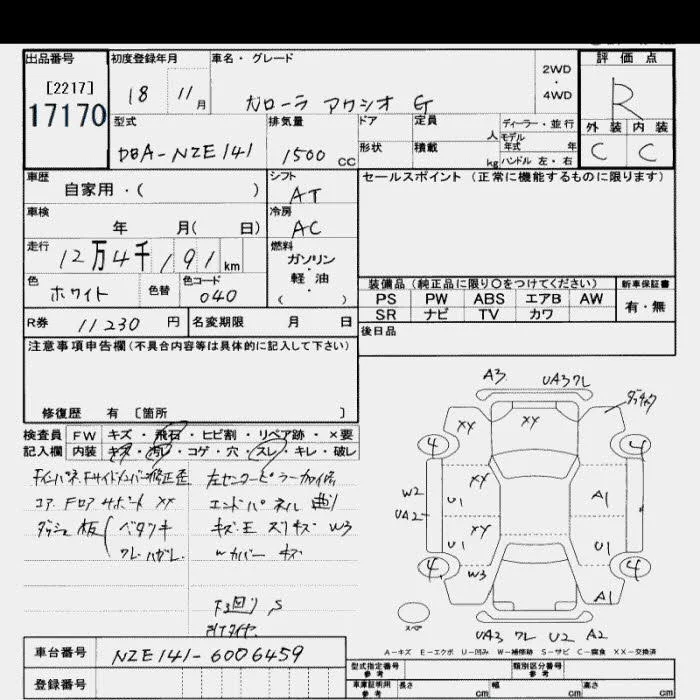 出品番号 初度登録年月 車名・グレード 2WD ・ 4WD 評価点
[2217] 17170 18 11月 カローラ アクシオ G R
型式 排気量 ドア 定員 人 ディーラー・並行 外装 内装
DBA-NZE141 1500 CC 形状 積載 kg モデル年式 年 ハンドル 左・右 C C
車歴 自家用・( ) シフト AT セールスポイント (正常に機能するものに限ります)
車検 年 月( 日) 冷房 AC
走行 12万4千191km 燃料 ガソリン・軽油 ( )
色 ホワイト 色替 色コード 040
装備品(純正品に限り○をつけてください) 新車保証書
PS PW ABS エアB AW 有・無
SR ナビ TV カワ
R券 11230 円 名変期限 月 日 後日品
注意事項申告欄(不具合内容等は具体的に記入して下さい)
修復歴 有 〔箇所 〕
検査員 FW キズ・飛石・ヒビ割・リペア跡・×要
記入欄 内装 キズ・汚レ・コゲ・穴・スレ・キレ・破レ
コア Fロア サポート XX エンドパネル 曲り
キズ W3
Wカバー キズ
A3 UA3 ワレ
XY
4 4
W2 XY A1
UA2 U1
XY
U1 U1
4 4
W3 A1
スペア
UA3 ワレ U2 A2
A-キズ E-エクボ U-凹み W-補修跡 S-サビ C-腐食 XX-交換済
車台番号 NZE141-6006459
登録番号
型式指定番号 参考 類別区分番号 参考
車庫証明用 参考 長さ cm 幅 cm 高さ cm